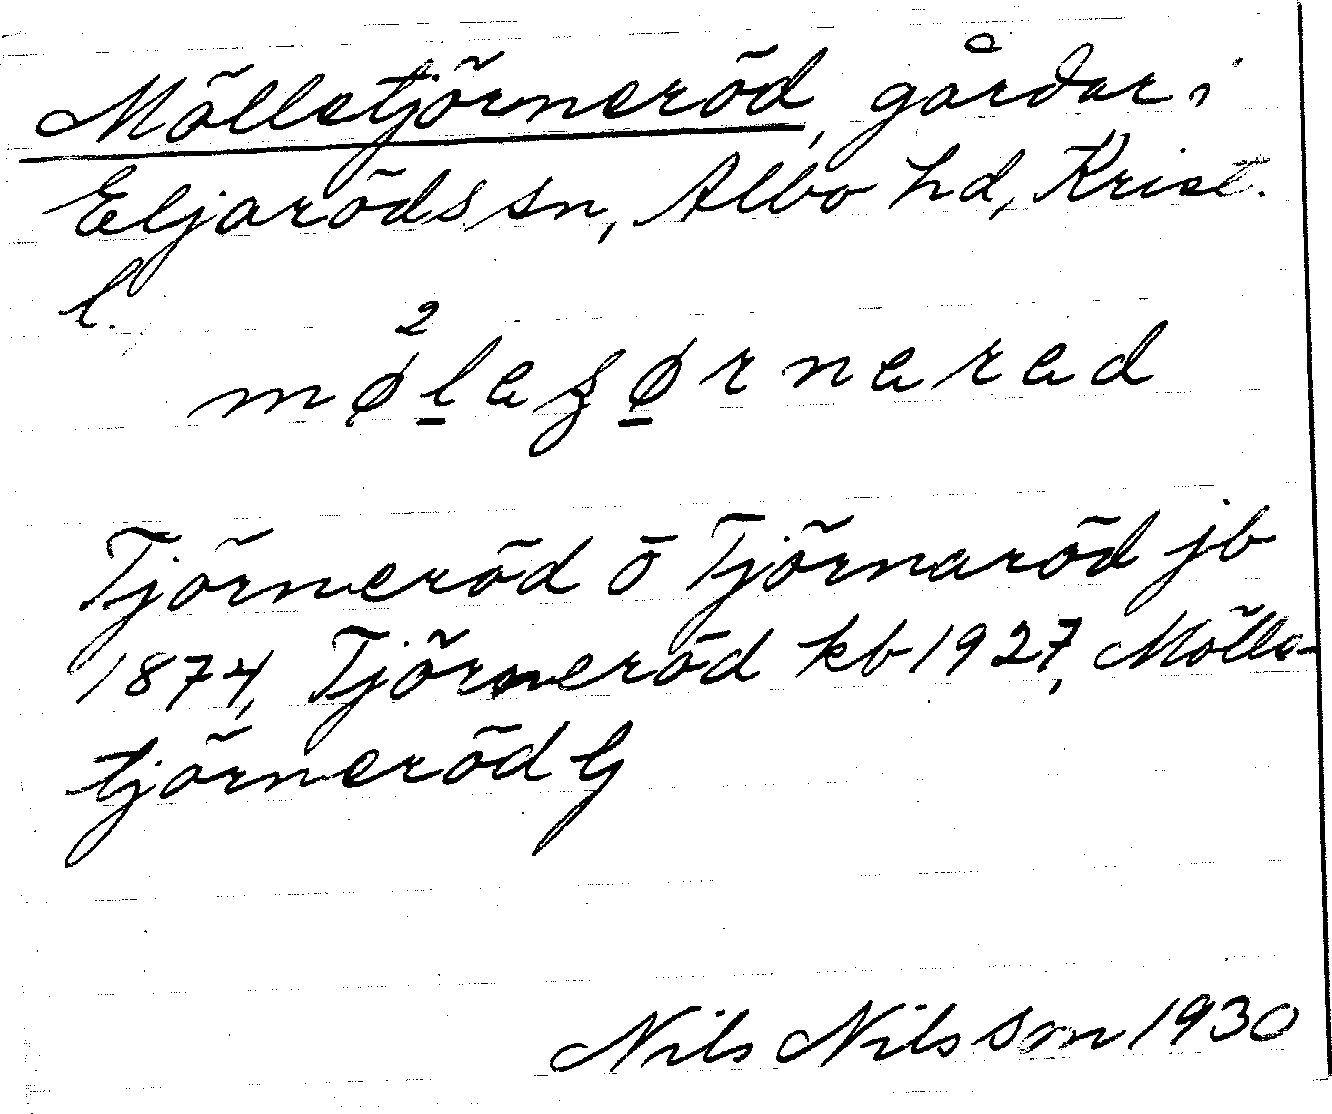 Mölletjörneröd, gårdar i
Eljaröds sn, Albo hd, Krist.
l.
2
møleʒørnarad
Tjörneröd o Tjörnaröd jb
1874, Tjörneröd kb 1927, Mölle-
tjörneröd
Nils Nilsson 1930